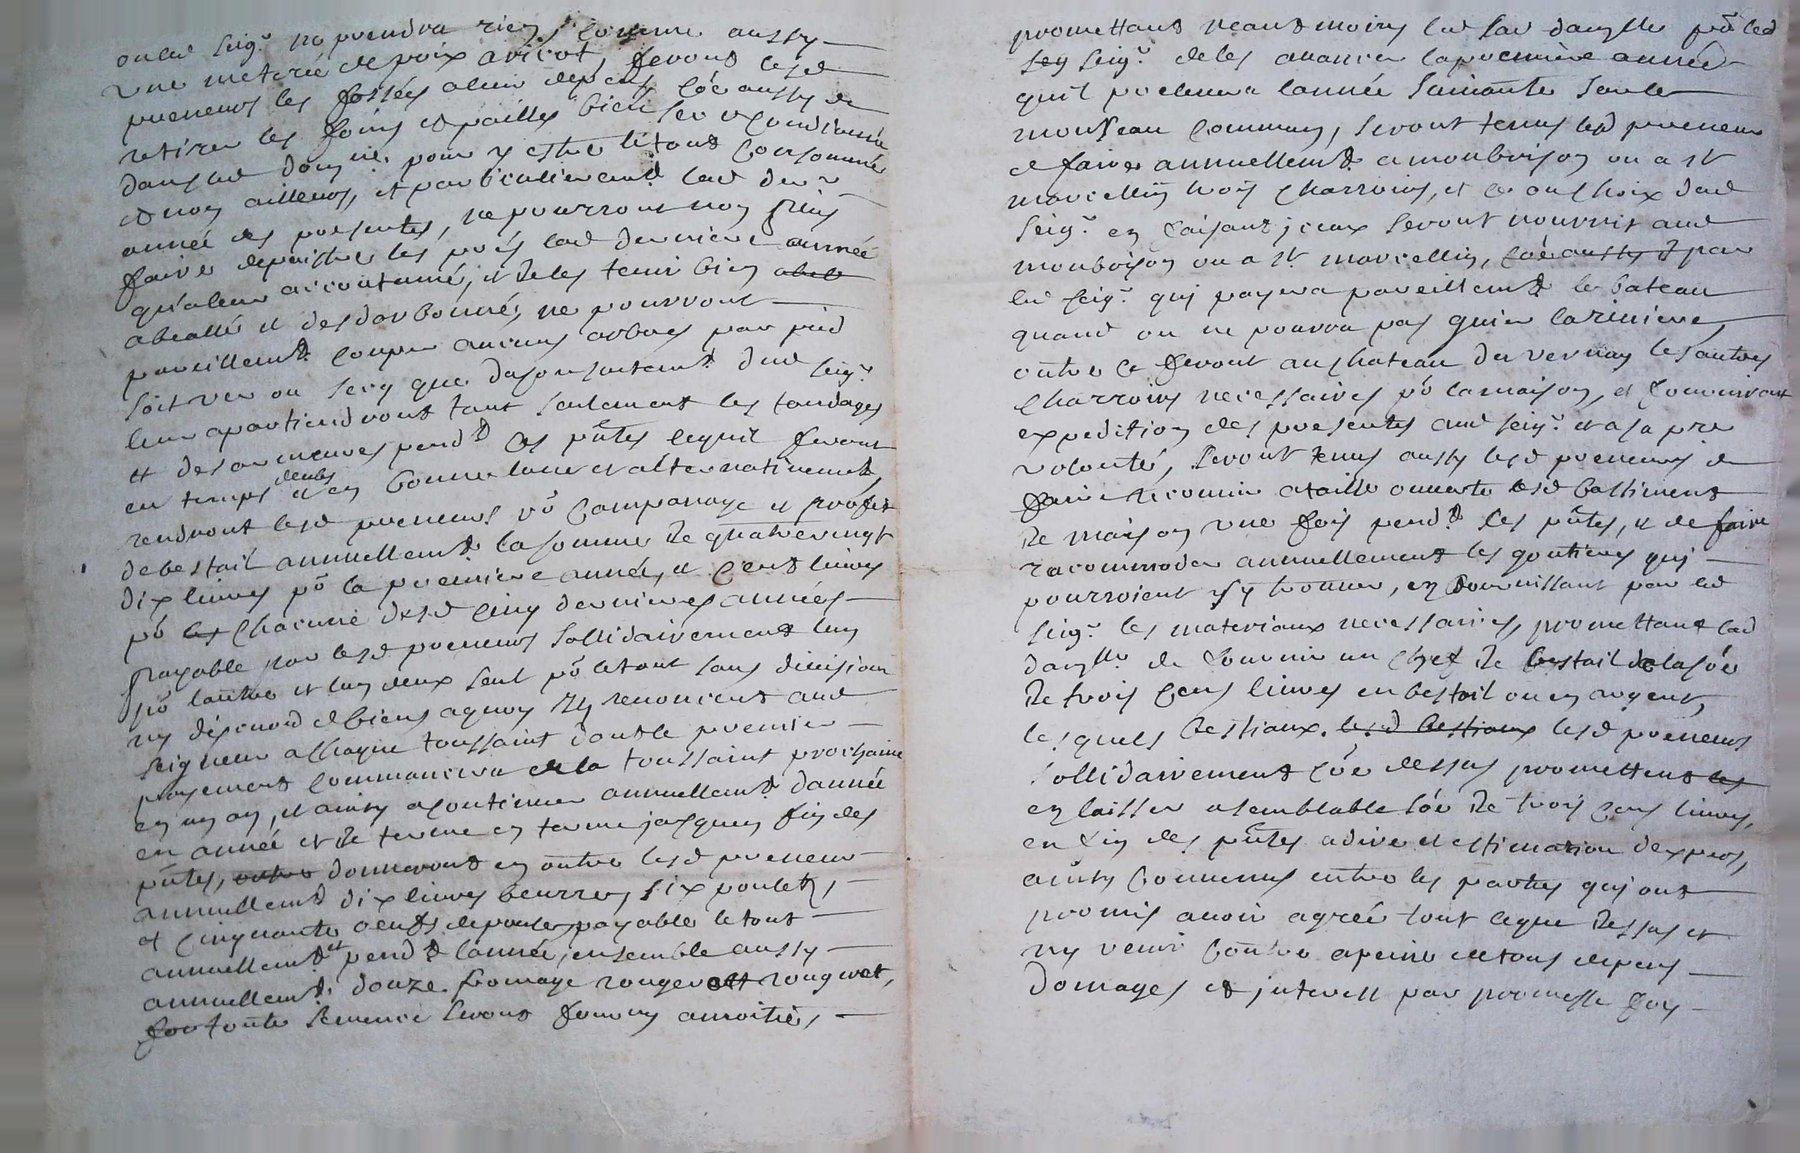 oulsd seigr ne prendra rien, comme aussy
une meterée de poix aricot, feront lesd
preneurs les fossés a leur depens, coe aussy de
retirer les foins et pailles bien sec et conditionné
dans led domne pour y estre le tout consommé
et non ailleurs, et particulieremt lad derre
année des presentes, ne pourront non plus
faire depaistre les prés lad derniere année
qu'a leur accoutumé, et de les tenir bien
abeallé et desdarbonné, ne pourront
pareillemt couper aucuns arbres par pied
soit ver ou secq que du consantemt dud seigr
leur apartiendront tant seulement les tondages
et desamures pendt ces pntes lequil feront
en temps deubs et en bonne lune et alternativement
rendront lesd preneurs po campanage et proffit
de bestail annuellemt la somme de quatrevingt
dix livres po la premiere année, et cent livres
po les chacune desd cinq dernieres années
payable par lesd preneurs sollidairement lun
po lautre et lun deux seul po le tout sans division
ny discution de biens a quoy ils renoncent aud
seigneur a chaque toussaint dont le premier
payement commancera de la toussaint prochaine
en un an, et ainsy a continuer annuellemt dannée
en année et de terme en terme jusques fin des
pntes, outre donneront en outre lesd preneurs
annuellemt dix livres beurre, six poulets,
et cinquante oeufs de poule payable le tout
annuellemt et pendt lannée, ensemble aussy
annuellemt douze fromage rougeret rougeret,
sur toute semence seront fournys a moitié,
promettant neantmoins led sad danglle po led
sey seigr de les avancer la premiere année
quil prelevera lannée suivante sur le
monseau commun, seront tenus lesd preneurs
de faire annuellemt a monbrison ou a st
marcellin trois charrois, et ce au choix dud
seigr en faisant iceux seront nourris aud
monbrison ou a st marcellin, coe aussy et par
led seigr qui payera pareillemt le bateau
quand on ne pourra pas gueer la riviere,
outre ce feront au chateau du vernay les autres
charrois necessaires po la maison, et fourniront
expedition des presentes aud seigr et a sa pre
volonté, seront tenus aussy lesd preneurs de
faire recouvrir a taille ouverte lesd bastiments
de maison une fois pendt les pntes, et de faire
racommoder annuellement les goutieres qui
pourroient s'y trouver, en fournissant par led
seigr les materiaux necessaires, promettant lad
danglle de fournir un chef de bestail de la soe
de trois cens livres en bestail ou en argent,
lesquels bestiaux lesd bestiaux lesd preneurs
sollidairement coe dessus promettent les
en laisser a semblable soe de trois cens livres,
en fin des pntes a dire et estimation d'expers,
ainsy convenus entre les parties qui ont
promis avoir agreé tout ce que dessus et
ny venir contre a peine de tous depens
domages et interest par promesse foy